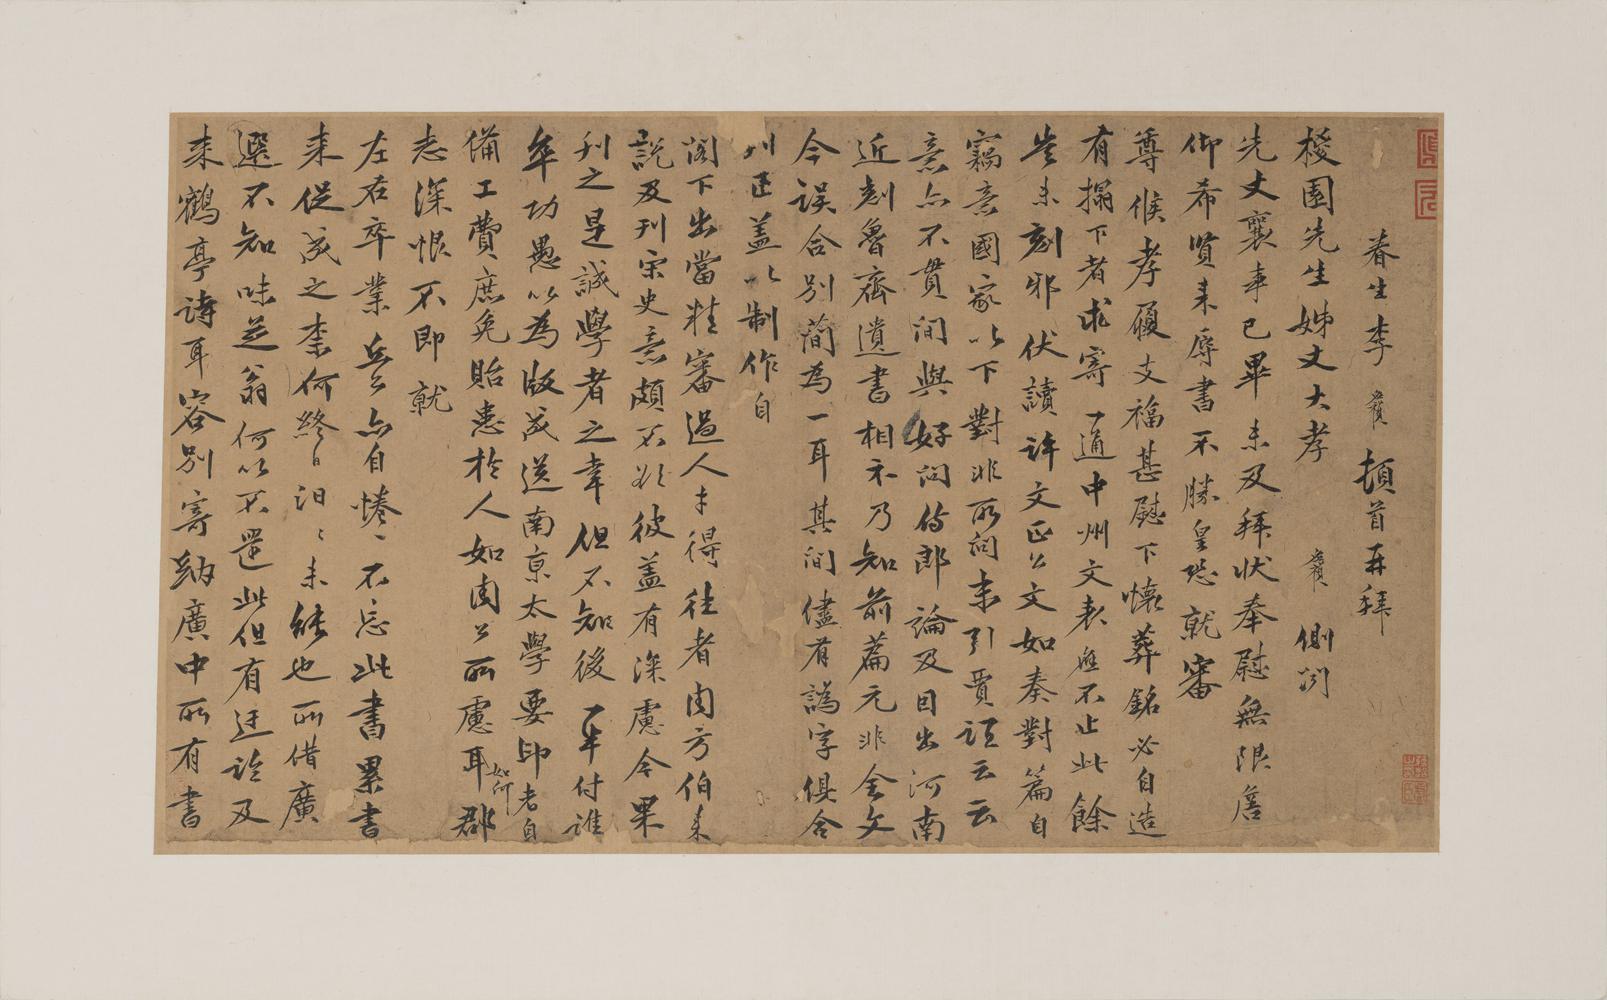 眷生李　頓首再拜
棱園先生姊丈大孝　側
先丈襄事已畢未及拜狀奉慰無限
仰希賢来辱書不勝皇恐就審
尊候孝履支福甚慰下懷葬銘必自造
有搨下者求寄一通中州文表應不止此餘
豈未刻邪伏讀許文正公文如奏對篇自
竊意國家以下對非所问末引賈誼云云
意亦不貫间與好问侍郎論及目出河南
近刻魯齋遺書相示乃知前篇元非全文
今誤合别简為一耳其间儘有譌字俱令
刊正蓋以制作自
阁下出當精審過人才得往者闵方伯来
說及刊宋史意頗不欲彼蓋有深慮今果
刊之是誠學者之幸但不知後年付誰
年功愚以為版成送南京太學要印者自
備工費庶免貽患於人如闵公所慮耳如何郡
志深恨不即就
左右卒業亦自惓惓不忘此書累書
来促成之柰何終日汩汩未能也所借廣
選不知味芝翁何以不還此但有廷諭及
来鶴亭詩耳容别寄納廣中所有書